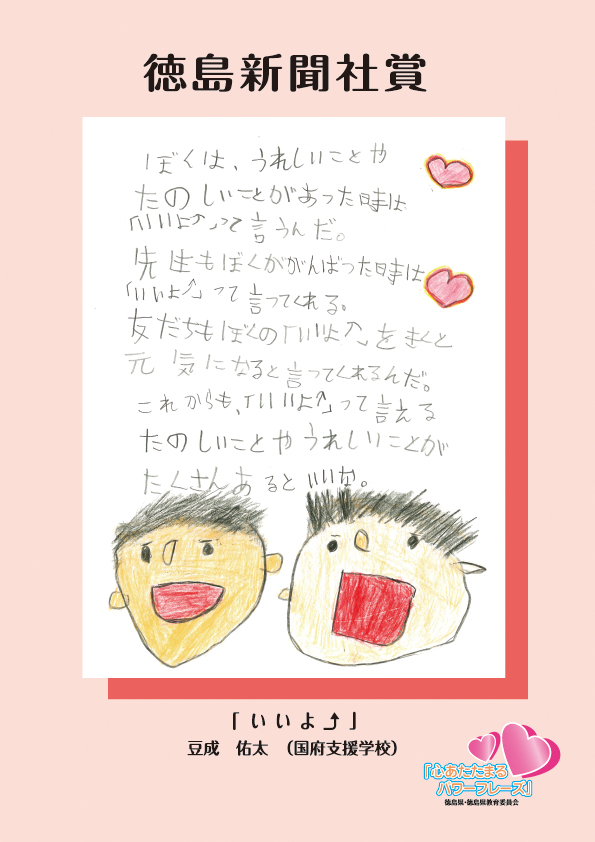 徳島新聞社賞
ぼくは、うれしいことや
たのしいことがあった時は
「いいよ⤴」って言うんだ。
先生もぼくががんばった時は
「いいよ⤴」って言ってくれる。
友だちもぼくの「いいよ⤴」をきくと
元気になると言ってくれるんだ。
これからも、「いいよ⤴」って言える
たのしいことやうれしいことが
たくさんあるといいな。
「いいよ⤴」
豆成 佑太 （国府支援学校）
「心あたたまる
パワーフレーズ」
徳島県・徳島県教育委員会